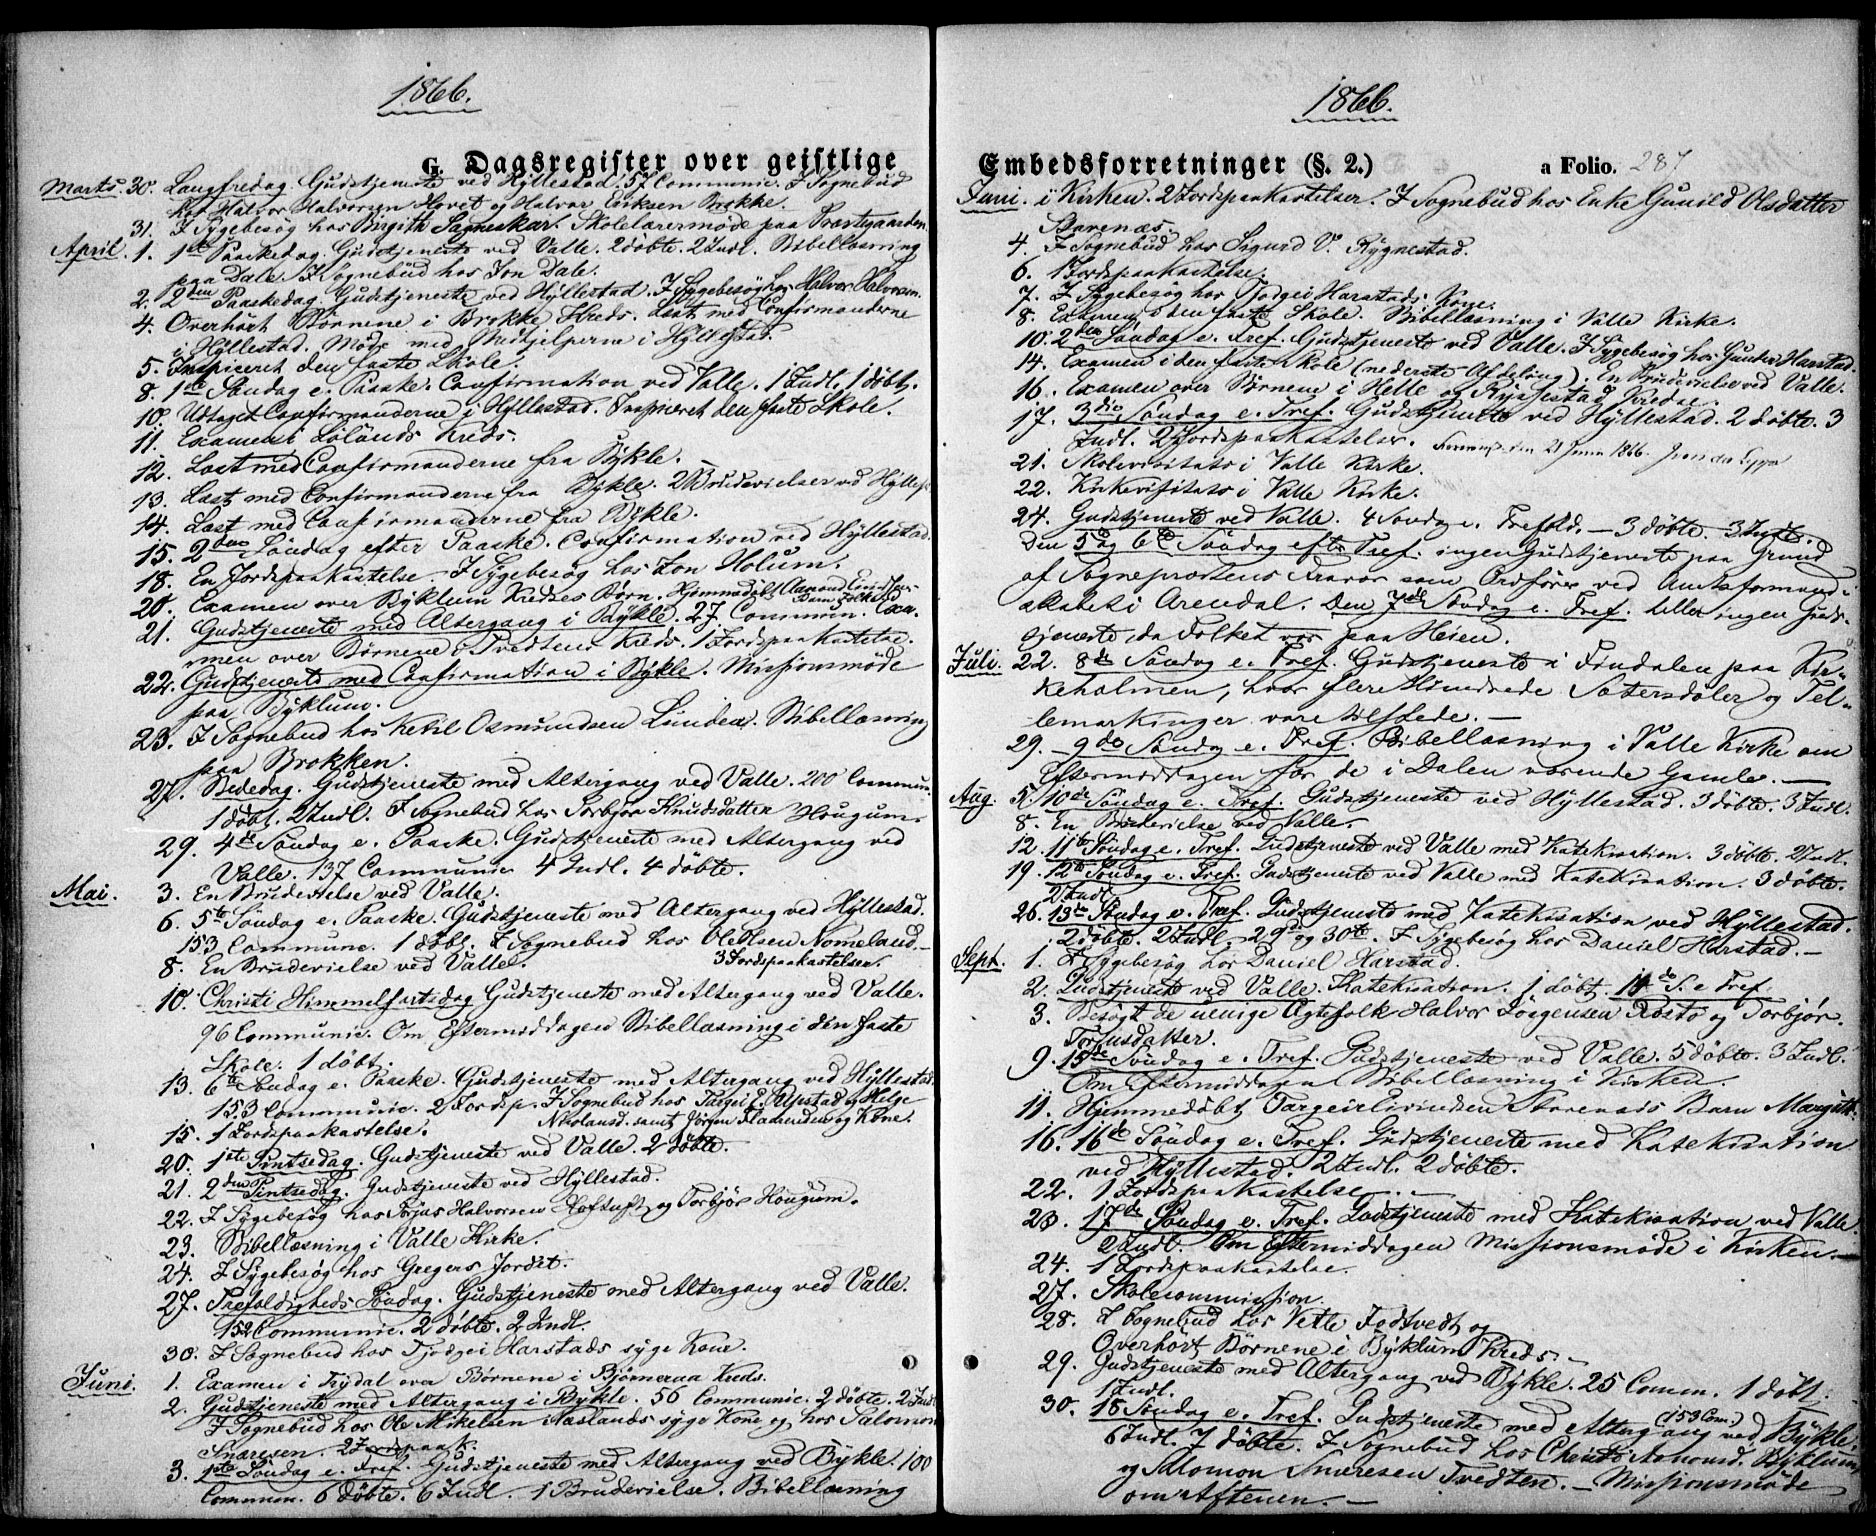 1866.
G. Dagsregister over geistlige
Marts. 30. Langfredag. Gudstjeneste ved Hyllestad. 57 Communic. I Sognebud
hos Halvor Halvorsen Hovet og Halvor Eriksen Brokke.
31. I Sygebesøg hos Birgith Sagneskar. Skolelærermøde paa Præstgaarden.
April. 1. 1ste Paaskedag. Gudstjeneste ved Valle. 2 døbte. 2 Indl. Bibellæsning
paa Dale. I Sognebud hos Jon Dale.
2. 2den Paaskedag. Gudstjeneste ved Hyllestad. I Sygebesøg hos Halvor Halvorsen.
4. Overhørt Børnene i Brokke Kreds. Læst med Confirmanderne
i Hyllestad. Møde med Medhjelperne i Hyllestad.
5. Inspiceret den faste Skole.
8. 1ste Søndag e. Paaske. Confirmation ved Valle. 1 Indl. 1 døbt.
10. Udtaget Confirmanderne i Hyllestad. Inspiceret den faste Skole.
11. Examen i LøLands Kreds.
12. Læst med Confirmanderne fra Bykle.
13. Læst med Confirmanderne fra Bykle. 2 Brudevielser ved Hyllest.
14. Læst med Confirmanderne fra Bykle.
15. 2den Søndag efter Paaske. Confirmation ved Hyllestad.
18. En Jordspaakastelse. I Sygebesøg hos Jon Holum.
20. Examen over Byklum Kredses Børn. Hjemmedøbt Aamund
21. Gudstjeneste med Altergang i Bykle. 27 Commun. Exa-
men over Børnene i Tvedtens Kreds. 1 Jordspaakastelse.
22. Gudstjeneste med Confirmation i Bykle. Missionsmøde
paa Byklum.
23. I Sognebud hos Ketil Osmundsen Lunden. Bibellæsning
paa Brokken.
27. Bededag. Gudstjeneste med Altergang ved Valle. 200 Commun.
1 døbt. 2 Indl. I Sognebud hos Torbjør Knudsdatter Hougum.
29. 4de Søndag e. Paaske. Gudstjeneste med Altergang ved
Valle. 137 Communic. 4 Indl. 4 døbte.
Mai. 3. En Brudevielse ved Valle.
6. 5te Søndag e. Paaske. Gudstjeneste med Altergang ved Hyllestad.
153 Commune. 1 døbt. I Sognebud hos Ole Olsen Nomeland.
8. En Brudevielse ved Valle. 3 Jordspaakastelser.
10. Christi Himmelfartsdag Gudstjeneste med Altergang ved Valle.
96 Communic. Om Eftermiddagen Bibellæsning i den faste
Skole. 1 døbt.
13. 6te Søndag e. Paaske. Gudstjeneste med Altergang ved Hyllestad.
153 Communic. 2 Jordsp. I Sognebud hos Targei E. Alfstad og Helge
15. 1 Jordspaakastelse. Nikolausd. samt Jörgen Flaarenden og Kone.
20. 1ste Pintsedag. Gudstjeneste ved Valle. 2 døbte.
21. 2den Pintsedag. Gudstjeneste ved Hyllestad.
22. I Sygebesøg hos Torjus Halvorsen Hoftuft og Torbjør Hougum.
23. Bibellæsning i Valle Kirke.
24. I Sygebesøg hos Gregers Jordet.
27. Trefoldigheds Søndag. Gudstjeneste med Altergang ved Valle.
152 Communic. 2 døbte. 2 Indl.
30. I Sognebud hos Tjødgei Harstads syge Kone.
Juni. 1. Examen i Trydal over Børnene i Bjørneraa Kreds.
2. Gudstjeneste med Altergang i Bykle. 56 Communic. 2 døbte. 2 Indl
I Sognebud hos Ole Mikelsen Aaslands syge Kone og hos Salomon
Snaresen. 2 Jordspaak.
3. 1ste Søndag e. Tref. Gudstjeneste med Altergang ved Bykle. 100
Commun. 6 døbte. 6 Indl. 1 Brudevielse. Bibellæsning
1866.
Embedsforretninger (§. 2.) a Folio. 287
Juni. i Kirken. 2 Jordspaakastelser. I Sognebud hos Enke Gunild Olsdatter
Storenæs.
4. I Sognebud hos Sigurd O. Rygnestad.
6. 1 Jordspaakastelse.
7. I Sygebesøg hos Tjødgei Harstads Kone.
8. Examen i den faste Skole. Bibellæsning i Valle Kirke.
10. 2den Søndag e. Tref. Gudstjeneste ved Valle. I Sygebesøg hos Gunder Harstad.
14. Examen i den faste Skole (nederste Afdeling). En Brudevielse ved Valle.
16. Examen over Børnene i Helle og Rysestad Kredse.
17. 3die Søndag e. Tref. Gudstjeneste ved Hyllestad. 2 døbte. 3
Indl. 2 Jordspaakastelser. 21 Juni 1866.
21. Skolevisitats i Valle Kirke.
22. Kirkevisitats i Valle Kirke.
24. Gudstjeneste ved Valle. 4 Søndag e. Trefold. — 3 døbte. 3 Indl.
Den 5 og 6te Søndag efter Tref. ingen Gudstjeneste paa Grund
af Sogneprestens Fravær som Ordfører ved Amtsformand-
skabet i Arendal. Den 7de Søndag e. Tref. heller ingen Guds-
tjeneste, da Folket var paa Heien.
Juli. 22. 8de Søndag e. Tref. Gudstjeneste i Findalen paa Kir-
keholmen, hvor flere Hundrede Sætersdøler og Tel-
lemarkinger vare tilstede. —
29. 9de Søndag e. Tref. Bibellæsning i Valle Kirke om
Eftermiddagen for de i Dalen værende Gamle. —
Aug. 5. 10de Søndag e. Tref. Gudstjeneste ved Hyllestad. 3 døbte. 3 Indl.
8. En Brudevielse ved Valle.
12. 11te Søndag e. Tref. Gudstjeneste ved Valle med Katekisation. 3 døbte. 2 Indl.
19. 12te Søndag e. Tref. Gudstjeneste ved Valle med Katekisation. 3 døbte.
2 Indl.
26. 13de Søndag e. Tref. Gudstjeneste med Katekisation ved Hyllestad.
2 døbte. 2 Indl. 29de og 30te. I Sygebesøg hos Daniel Harstad. —
Sept. 1. I Sygebesøg hos Daniel Harstad.
2. Gudstjeneste ved Valle. Katekisation. 1 døbt. 14de S. e Tref.
3. Besøgt de uenige Ægtefolk Halvor Jörgensen Rosto og Torbjør
Torjusdatter.
9. 15de Søndag e. Tref. Gudstjeneste ved Valle. 5 døbte. 3 Indl.
Om Eftermiddagen Bibellæsning i Kirken.
11. Hjemmedøbt Targeir Eivindsen Storenæs Barn Margith.
16. 16de Søndag e. Tref. Gudstjeneste med Katekisation
ved Hyllestad. 2 Indl. 2 døbte.
22. 1 Jordspaakastelse.
23. 17de Søndag e. Tref. Gudstjeneste med Katekisation ved Valle.
2 Indl. Om Eftermiddagen Missionsmøde i Kirken. —
24. 1 Jordspaakastelse.
27. Skolecommission.
28. I Sognebud hos Vetle Fodtvedt og
Overhørt Børnene i Byklum Kreds. —
29. Gudstjeneste med Altergang ved Bykle. 25 Comm. 1 døbt.
1 Indl.
30. 18 Søndag e. Tref. Gudstjeneste med Altergang ved Bykle (153 Com.)
6 Indl. 7 døbte. I Sognebud hos Christi Aamund. Byklum
og Salomon Snaresen Tvedten. — Missionsmøde
om Aftenen. —